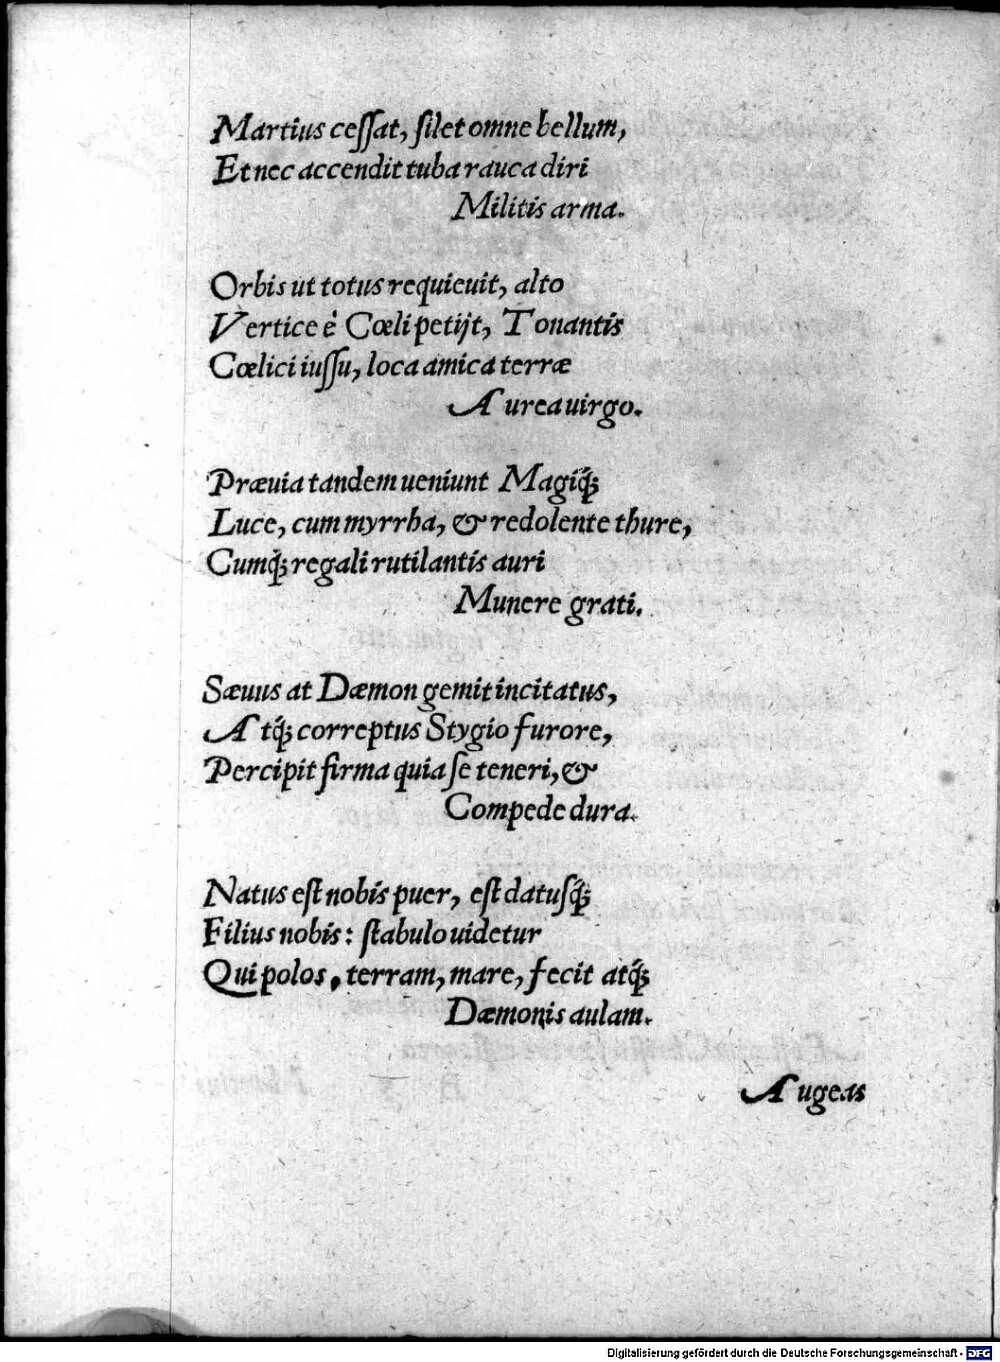 Martius ceſſat, ſilet omne bellum,
Et nec accendit tuba rauca diri
Militis arma.
Orbis ut totus requieuit, alto
Vertice è Cœli petijt, Tonantis
Cœlici iuſſu, loca amica terræ
Aurea uirgo.
Præuia tandem ueniunt Magiq́;
Luce, cum myrrha, & redolente thure,
Cumq́; regali rutilantis auri
Munere grati.
Sæuus at Dæmon gemit incitatus,
Atq́; correptus Stygio furore,
Percipit firma quia ſe teneri, &
Compede dura.
Natus eſt nobis puer, eſt datuſq́;
Filius nobis: ſtabulo uidetur
Qui polos, terram, mare, fecit atq́;
Dæmonis aulam.
Augeas
Digitalisierung gefördert durch die Deutsche Forschungsgemeinschaft - DFG